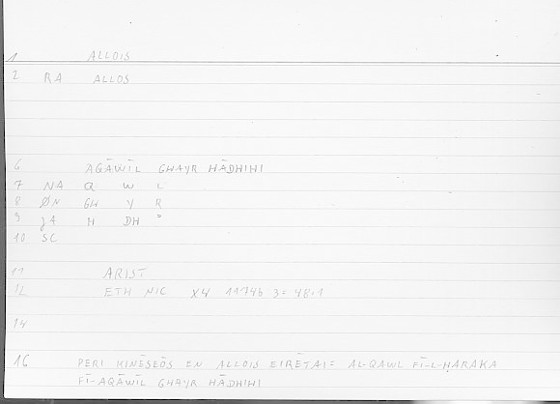 1 ALLOIS
2 RA ALLOS
6 AQĀWĪL GHAYR HĀDHIHI
7 NA Q W L
8 ØN GH Y R
9 JA H DH *
10 SC
11 ARIST
12 ETH NIC X4 1174b 3 = 48.1
14
16 PERI KINĒSEŌS EN ALLOIS EIRĒTAI = AL-QAWL FĪ-L-ḤARAKA
FĪ-AQĀWĪL GHAYR HĀDHIHI